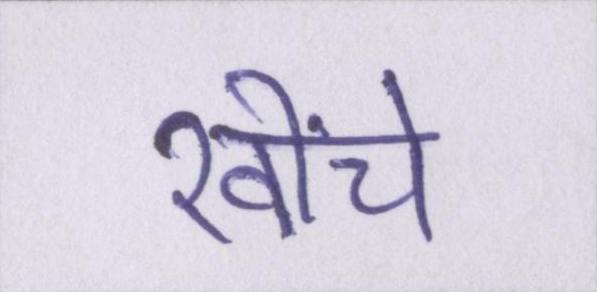 खींचे